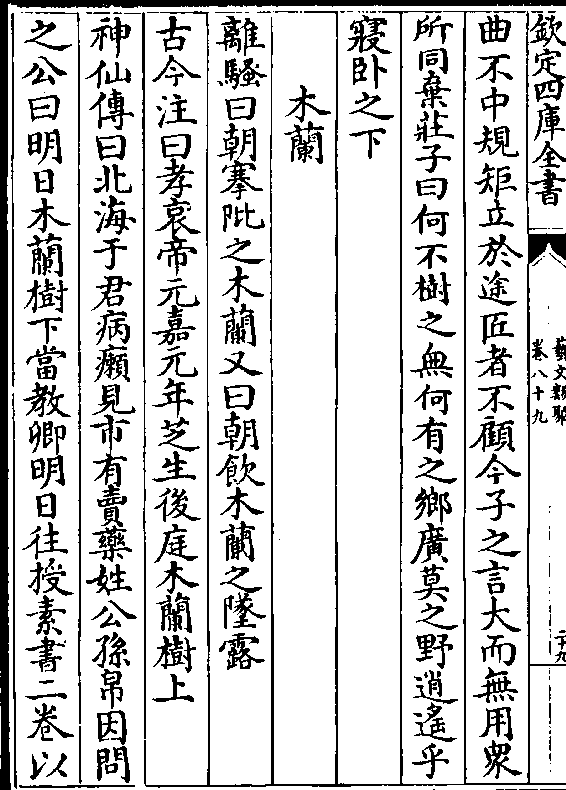 欽定四庫全書
藝文類聚
卷八十九
二十九
曲不中規矩立於途匠者不顧今子之言大而無用衆
所同棄莊子曰何不樹之無何有之鄉廣莫之野逍遙乎
寢卧之下
木蘭
離騷曰朝搴阰之木蘭又曰朝飲木蘭之墜露
古今注曰孝哀帝元嘉元年芝生後庭木蘭樹上
神仙傳曰北海于君病癩見市有賣藥姓公孫帛因問
之公曰明日木蘭樹下當教卿明日往授素書二卷以